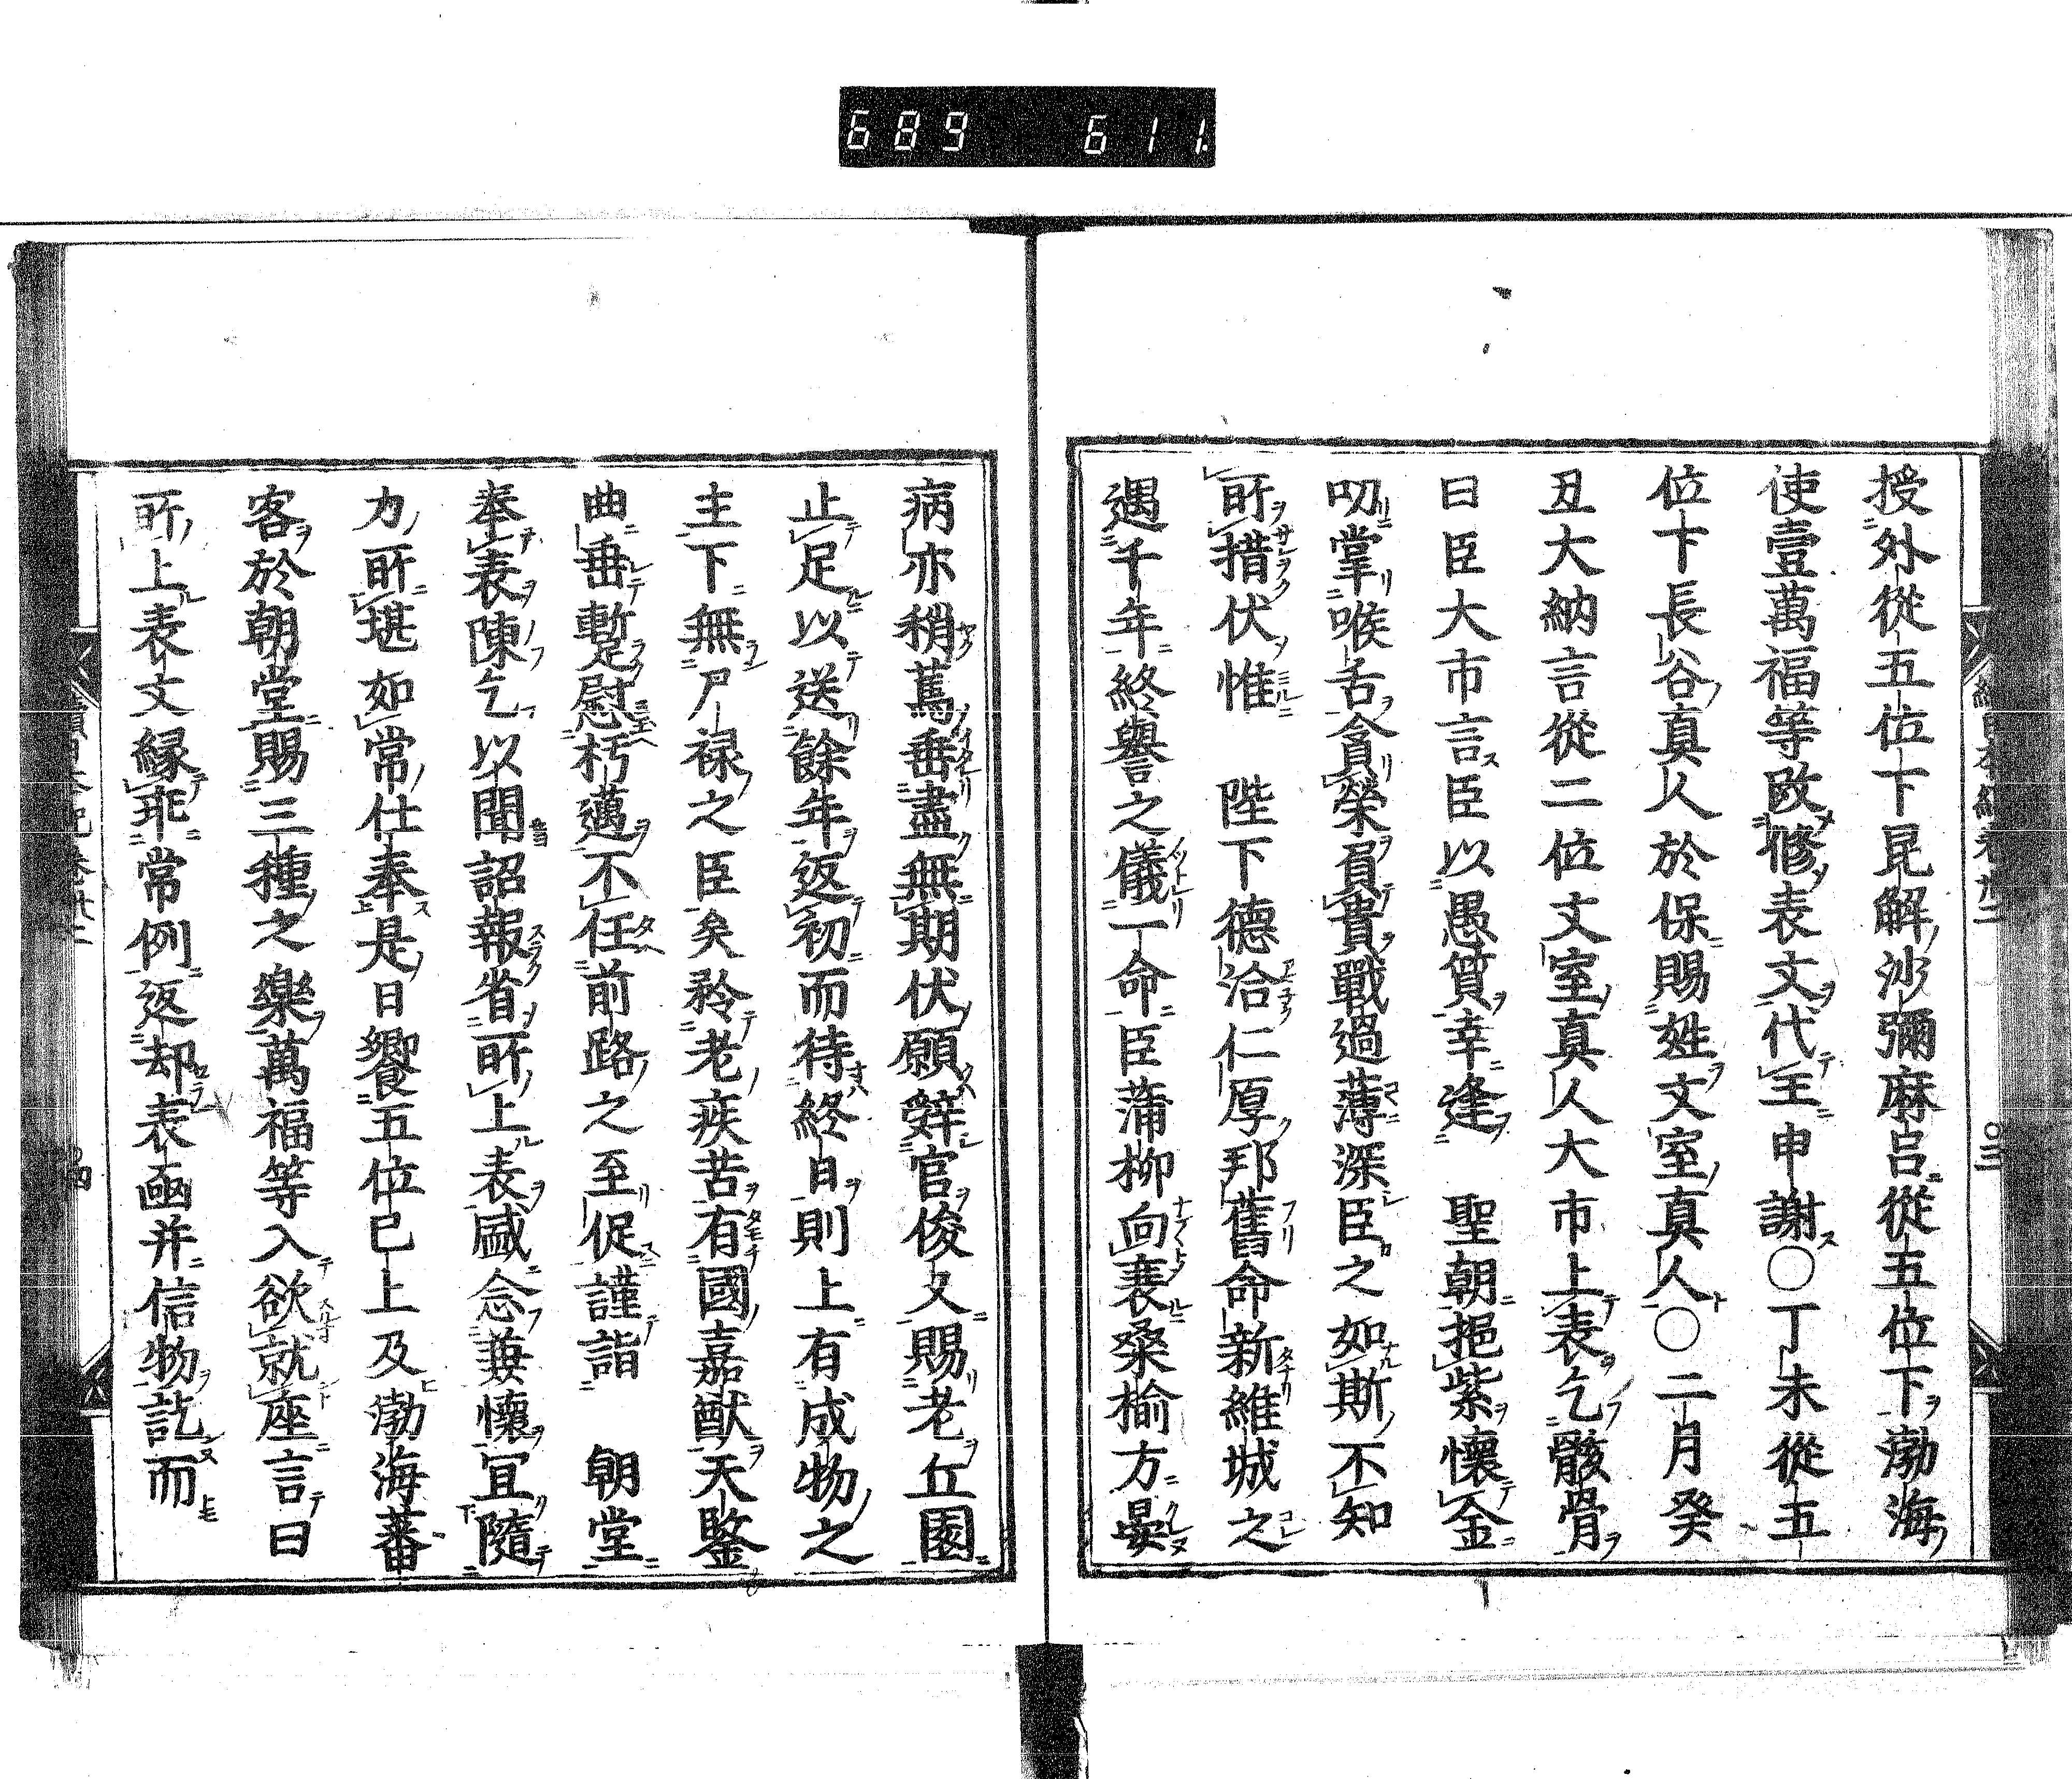 689 611.
授外從五位下昆解沙彌麻呂從五位下渤海
使壹萬福等改修表文代王申謝〇丁未從五
位下長谷真人於保賜姓文室真人〇二月癸
丑大納言從二位文室真人大市上表乞骸骨
曰臣大市言臣以愚質幸逢　聖朝拖紫懷金
叨掌喉舌貪榮負貴戰過薄深臣之如斯不知
所措伏惟　陛下德洽仁厚邦舊命新維城之
遇千年終譽之儀一命臣蒲柳向衰桑榆方晏
病亦稍篤垂盡無期伏願辞官俊乂賜老丘園
止足以送餘年返初而待終日則上有成物之
主下無尸禄之臣矣矜老疾苦有國嘉猷天鑒
曲垂暫慰朽邁不任前路之至促謹詣　朝堂
奉表陳乞以聞詔報省所上表感念兼懷宜隨
力所堪如常仕奉是日饗五位已上及渤海蕃
客於朝堂賜三種之樂萬福等入欲就座言曰
所上表文縁乖常例返却表函并信物訖而